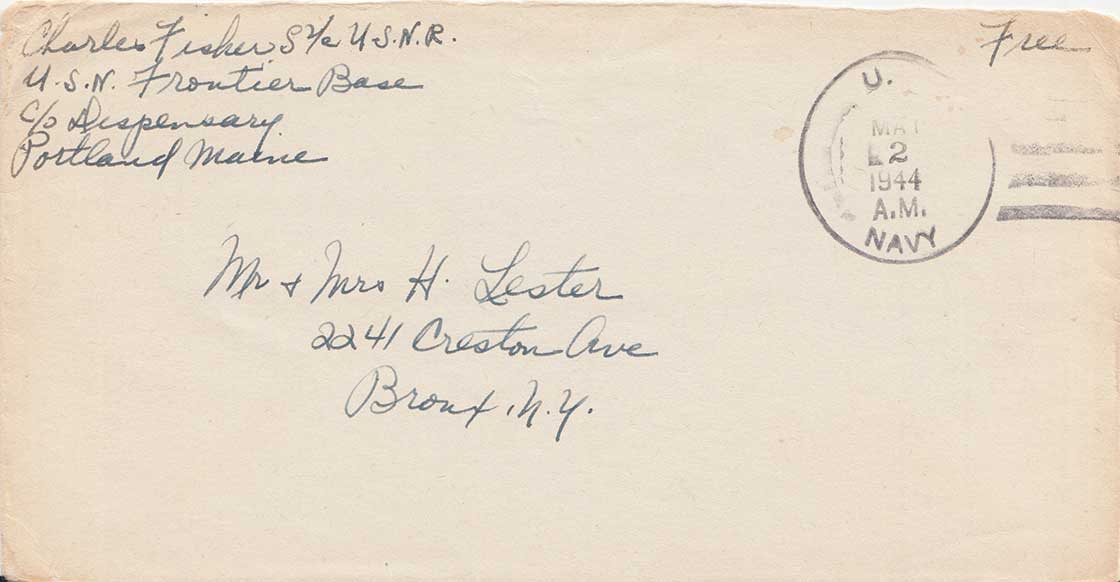 Charles Fisher S 1/c U.S.N.R.
U.S.N. Frontier Base
c/o Dispensary
Portland Maine
Free
U.
2
1944
A.M.
NAVY
Mr + Mrs H. Lester
2241 Creston Ave
Bronx, N.Y.